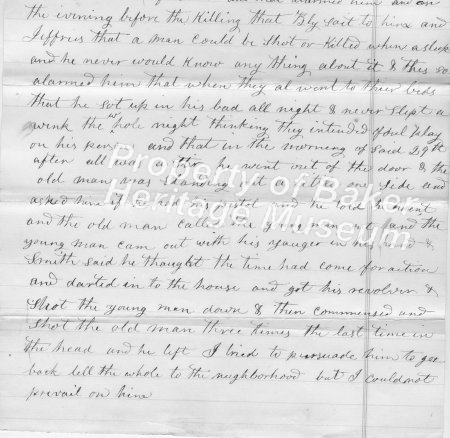 alarmed him and on
the evening before the Killing that Bly sait to him and
Jeffries that a man Could be Shot or Killed when asleep
and he never would Know any thing about it & this so
alarmed him that when they al went to their beds
that he Sot up in his bad all night & never Slept a
wink the whole night thinking they intended foul play
on his person and that in the morning of Said 29th
after all was he went out of the door & the
old man was Standing off a little one Side and
asked him if he had his pistol and he told him
and the old man the young man out and the
young man cam out with his yauger in hand &
Smith Said he thaught the time had come for action
and darted in to the house and got his revolver &
Shot the young man down & then commensed and
Shot the old man three times the last time in
the head and he left I tried to pursuade him to go
back tell the whole to the neighborhood but I could not
prevail on him
Property of Baker
Heritage Museum